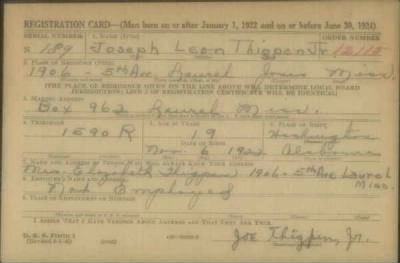 REGISTRATION CARD—(Men born on or after January 1, 1922 and on or before June 30, 1924)
SERIAL NUMBER 1. NAME (Print) ORDER NUMBER
N 189 Joseph Leon Thigpen Jr 12115
2. PLACE OF RESIDENCE (Print)
1906 - 5th Ave Laurel Jones Miss.
(THE PLACE OF RESIDENCE GIVEN ON THE LINE ABOVE WILL DETERMINE LOCAL BOARD
JURISDICTION; LINE 2 OF REGISTRATION CERTIFICATE WILL BE IDENTICAL)
3. MAILING ADDRESS
Box 962 Laurel Miss.
4. TELEPHONE 5. AGE IN YEARS 6. PLACE OF BIRTH
1590 R 19 Washington
DATE OF BIRTH
Nov. 6 1922 Alabama
7. NAME AND ADDRESS OF PERSON WHO WILL ALWAYS KNOW YOUR ADDRESS
Mrs. Elizabeth Thigpen 1906-5th Ave Laurel
Miss.
8. EMPLOYER'S NAME AND ADDRESS
Not Employed
9. PLACE OF EMPLOYMENT OR BUSINESS
I AFFIRM THAT I HAVE VERIFIED ABOVE ANSWERS AND THAT THEY ARE TRUE.
D. S. S. FORM 1
Joe Thigpen, Jr.